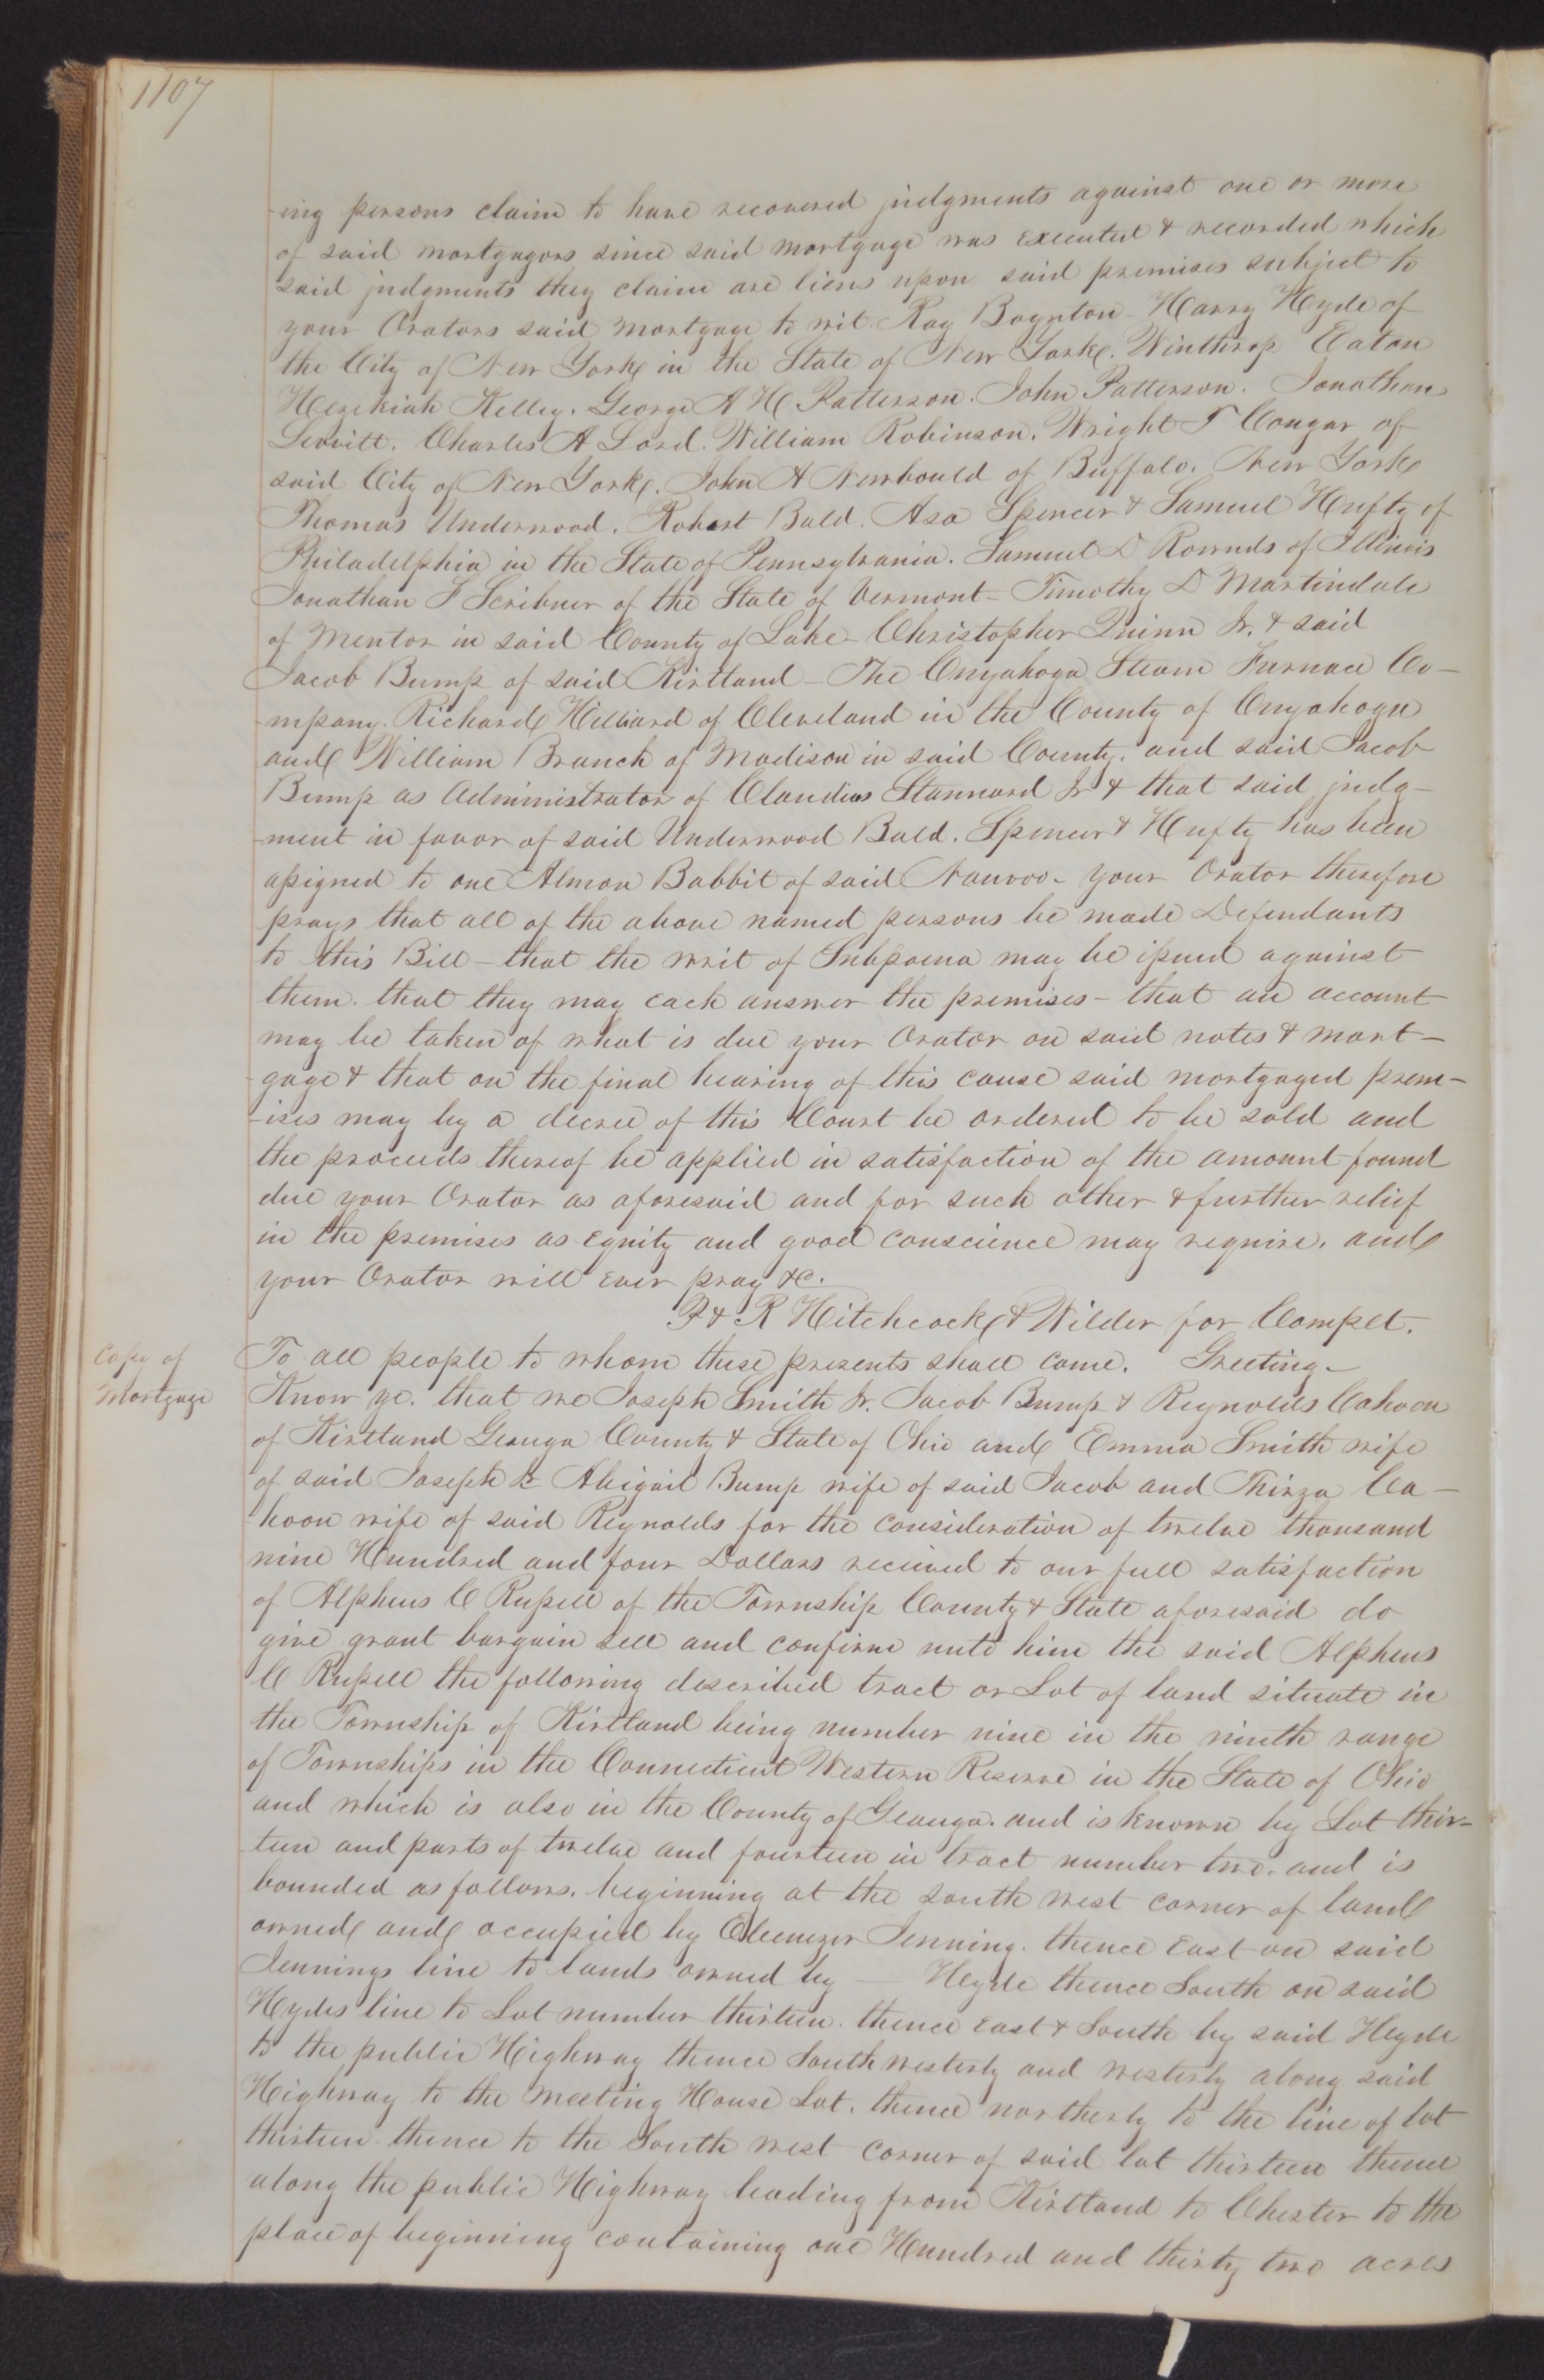 1107
-ing persons claim to have recovered judgments against one or more
of said mortgagors since said mortgage was executed & recorded which
said judgments they claim are liens upon said premises subject to
your Orators said mortgage to wit. Ray Boynton - Harry Hyde of
the City of New York in the State of New York. Winthrop Eaton
Hezekiah Kelley. George A H Patterson. John Patterson. Jonathan
Levvitt. Charles A Lord. William Robinson. Wright T Congar of
said City of New York. John A Newbould of Buffalo. New York
Thomas Underwood. Robert Bald. Asa Spencer & Samuel Hufty of
Philadelphia in the State of Pennsylvania. Samuel D Rownds of Illinois
Jonathan F Scribner of the State of Vermont - Timothy D Martindale
of Mentor in said County of Lake - Christopher Quinn Jr. & said
Jacob Bump of said Kirtland - The Cuyahoga Steam Furnace Co-
-mpany. Richard Hilliard of Cleveland in the County of Cuyahoga
and William Branch of Madison in said County. and said Jacob
Bump as Administrator of Claudius Stannard Jr & that said judg-
-ment in favor of said Underwood Bald. Spencer & Hufty has been
assigned to one Almon Babbit of said Nauvoo - your Orator therefore
prays that all of the above named persons be made Defendants
to this Bill - that the writ of Subpoena may be issued against
them. that they may each answer the premises - that an account
may be taken of what is due your Orator on said notes & mort-
-gage & that on the final hearing of this cause said mortgaged prem-
-ises may by a decree of this Court be ordered to be sold and
the proceeds thereof be applied in satisfaction of the amount found
due your Orator as aforesaid and for such other & further relief
in the premises as equity and good conscience may require. and
your Orator will ever pray &c.
P & R Hitchcock & Wilder for Complt.
Copy of
Mortgage
To all people to whom these presents shall come. Greeting -
Know ye. that we Joseph Smith Jr. Jacob Bump & Reynolds Cahoon
of Kirtland Geauga County & State of Ohio and Emma Smith wife
of said Joseph & Abigail Bump wife of said Jacob and Thirza Ca-
-hoon wife of said Reynolds for the consideration of twelve thousand
nine Hundred and four Dollars received to our full satisfaction
of Alpheus C Russell of the Township County & State aforesaid do
give grant bargain sell and confirm unto him the said Alpheus
C Russell the following described tract or Lot of land situate in
the Township of Kirtland being number nine in the ninth range
of Townships in the Connecticut Western Reserve in the State of Ohio
and which is also in the County of Geauga. and is known by Lot thir-
-teen and parts of twelve and fourteen in tract number two. and is
bounded as follows. beginning at the south west corner of land
owned and occupied by Ebenezer Jenning. thence East on said
Jennings line to lands owned by — Hyde thence South on said
Hydes line to Lot number thirteen. thence East & South by said Hyde
to the public Highway thence South westerly and westerly along said
Highway to the meeting House Lot. thence northerly to the line of lot
thirteen. thence to the South west corner of said lot thirteen thence
along the public Highway leading from Kirtland to Chester to the
place of beginning containing one Hundred and thirty two acres